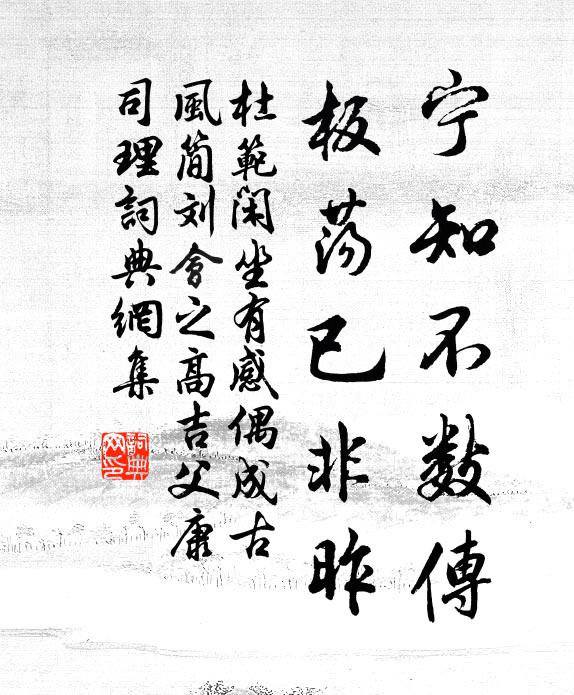 宁知不数傳
板荡已非昨
杜範闲坐有感偶成古
風简刘會之高吉父康
司理詞典網集
詞典
网印